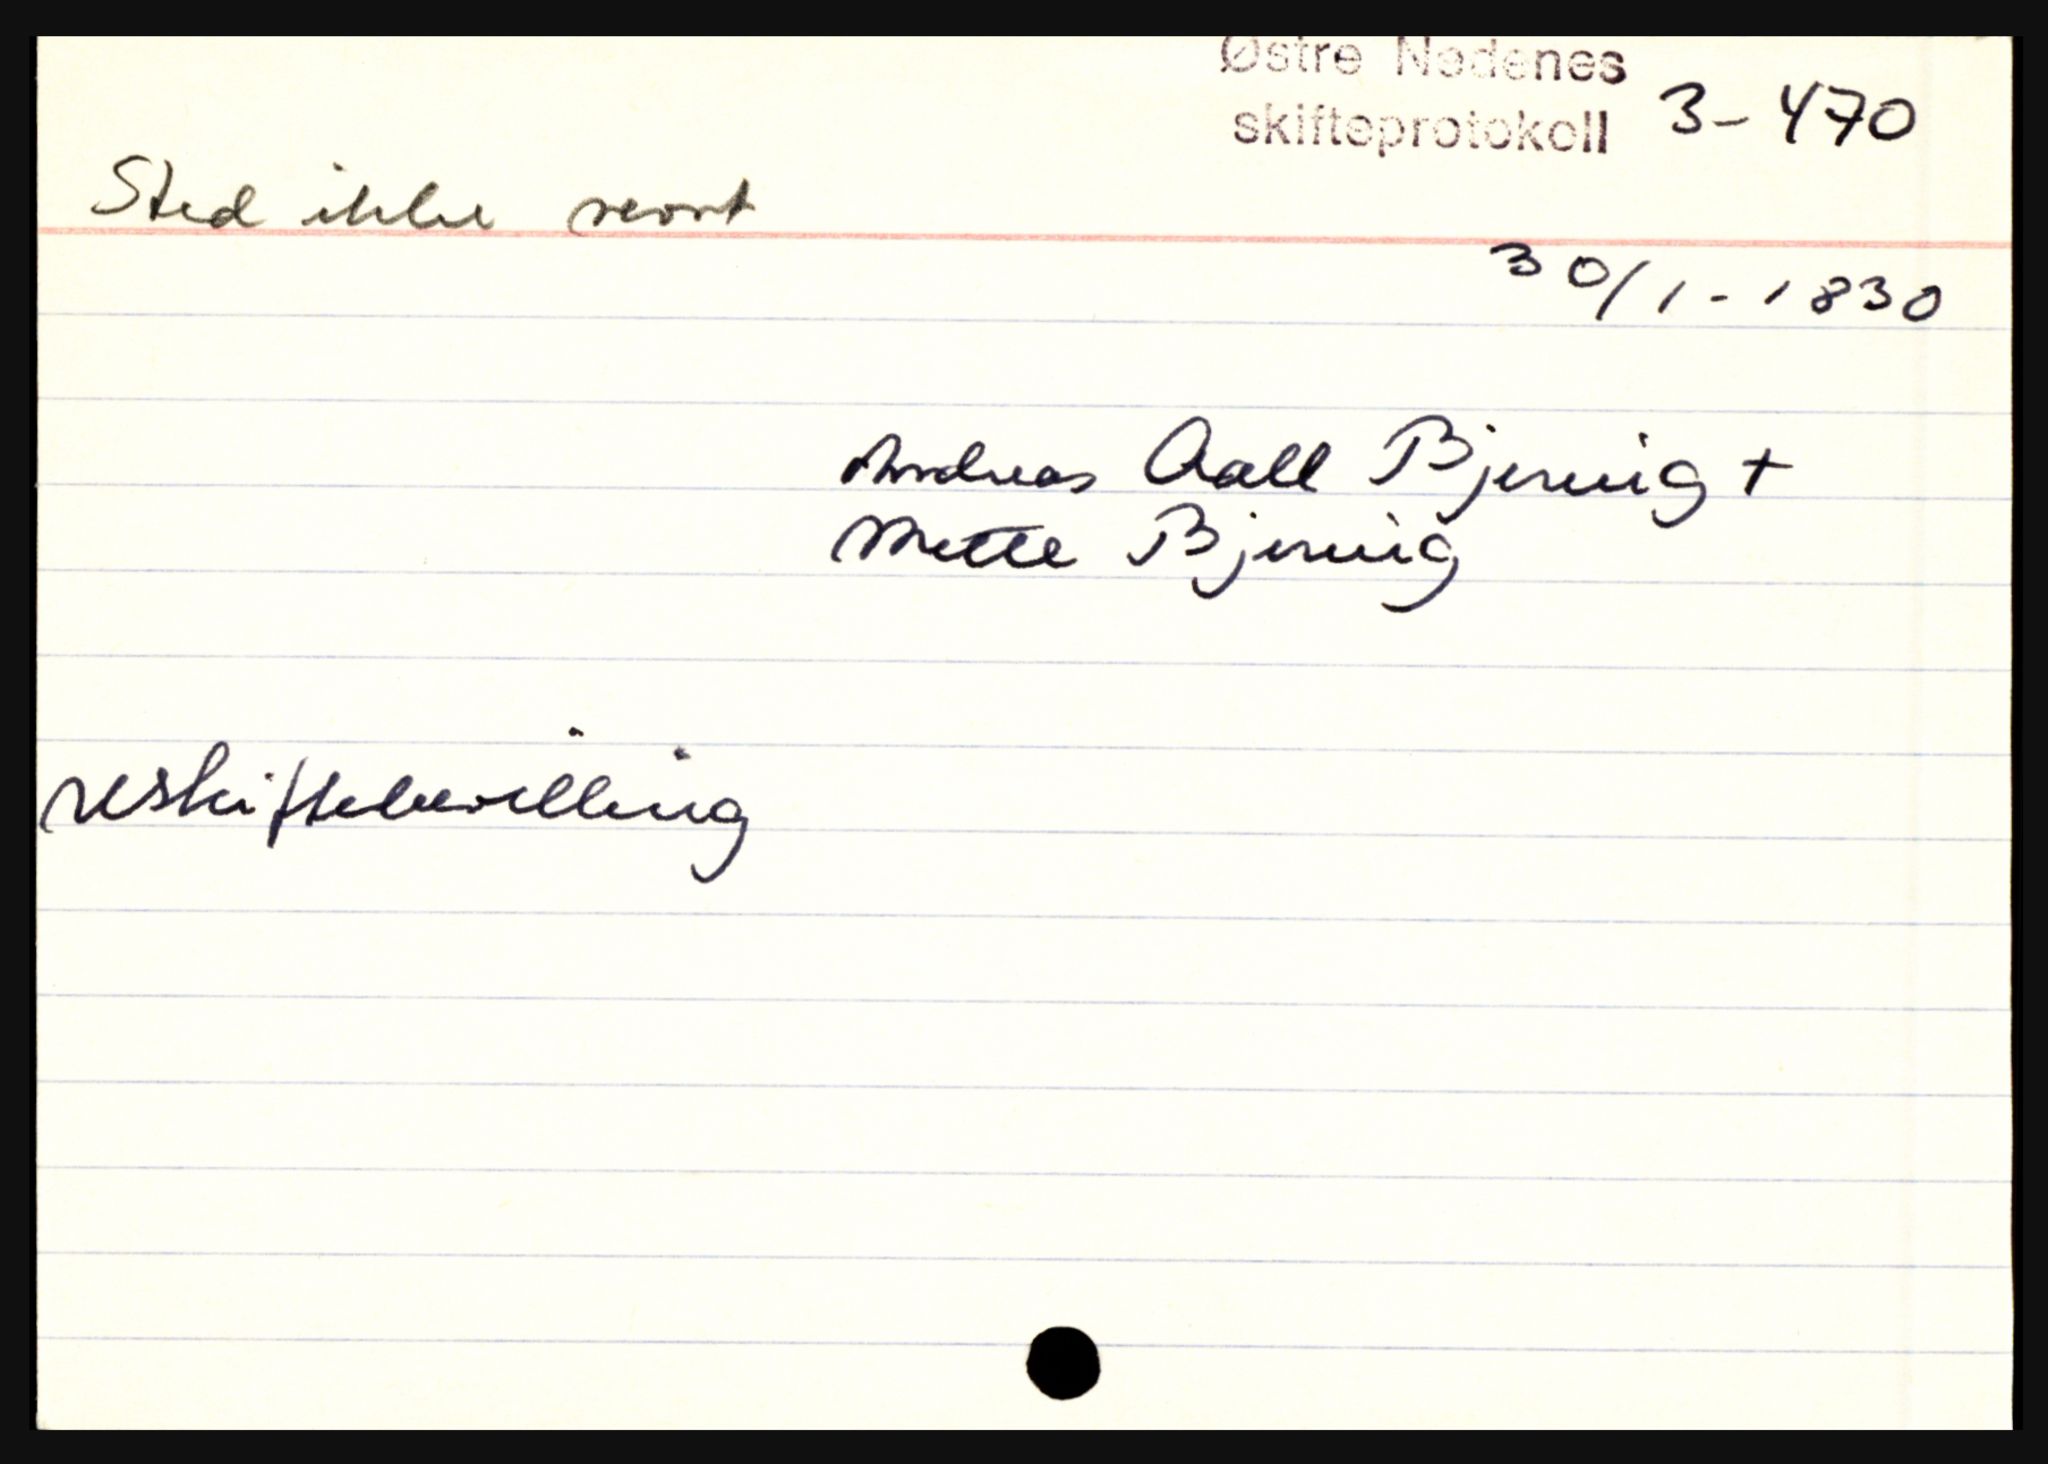 Østre Nedenes
skifteprotokoll 3-470
Sted ikke nevnt
30/1-1830
Andreas Aall Bjernig +
Mette Bjernig
uskiftebevilling